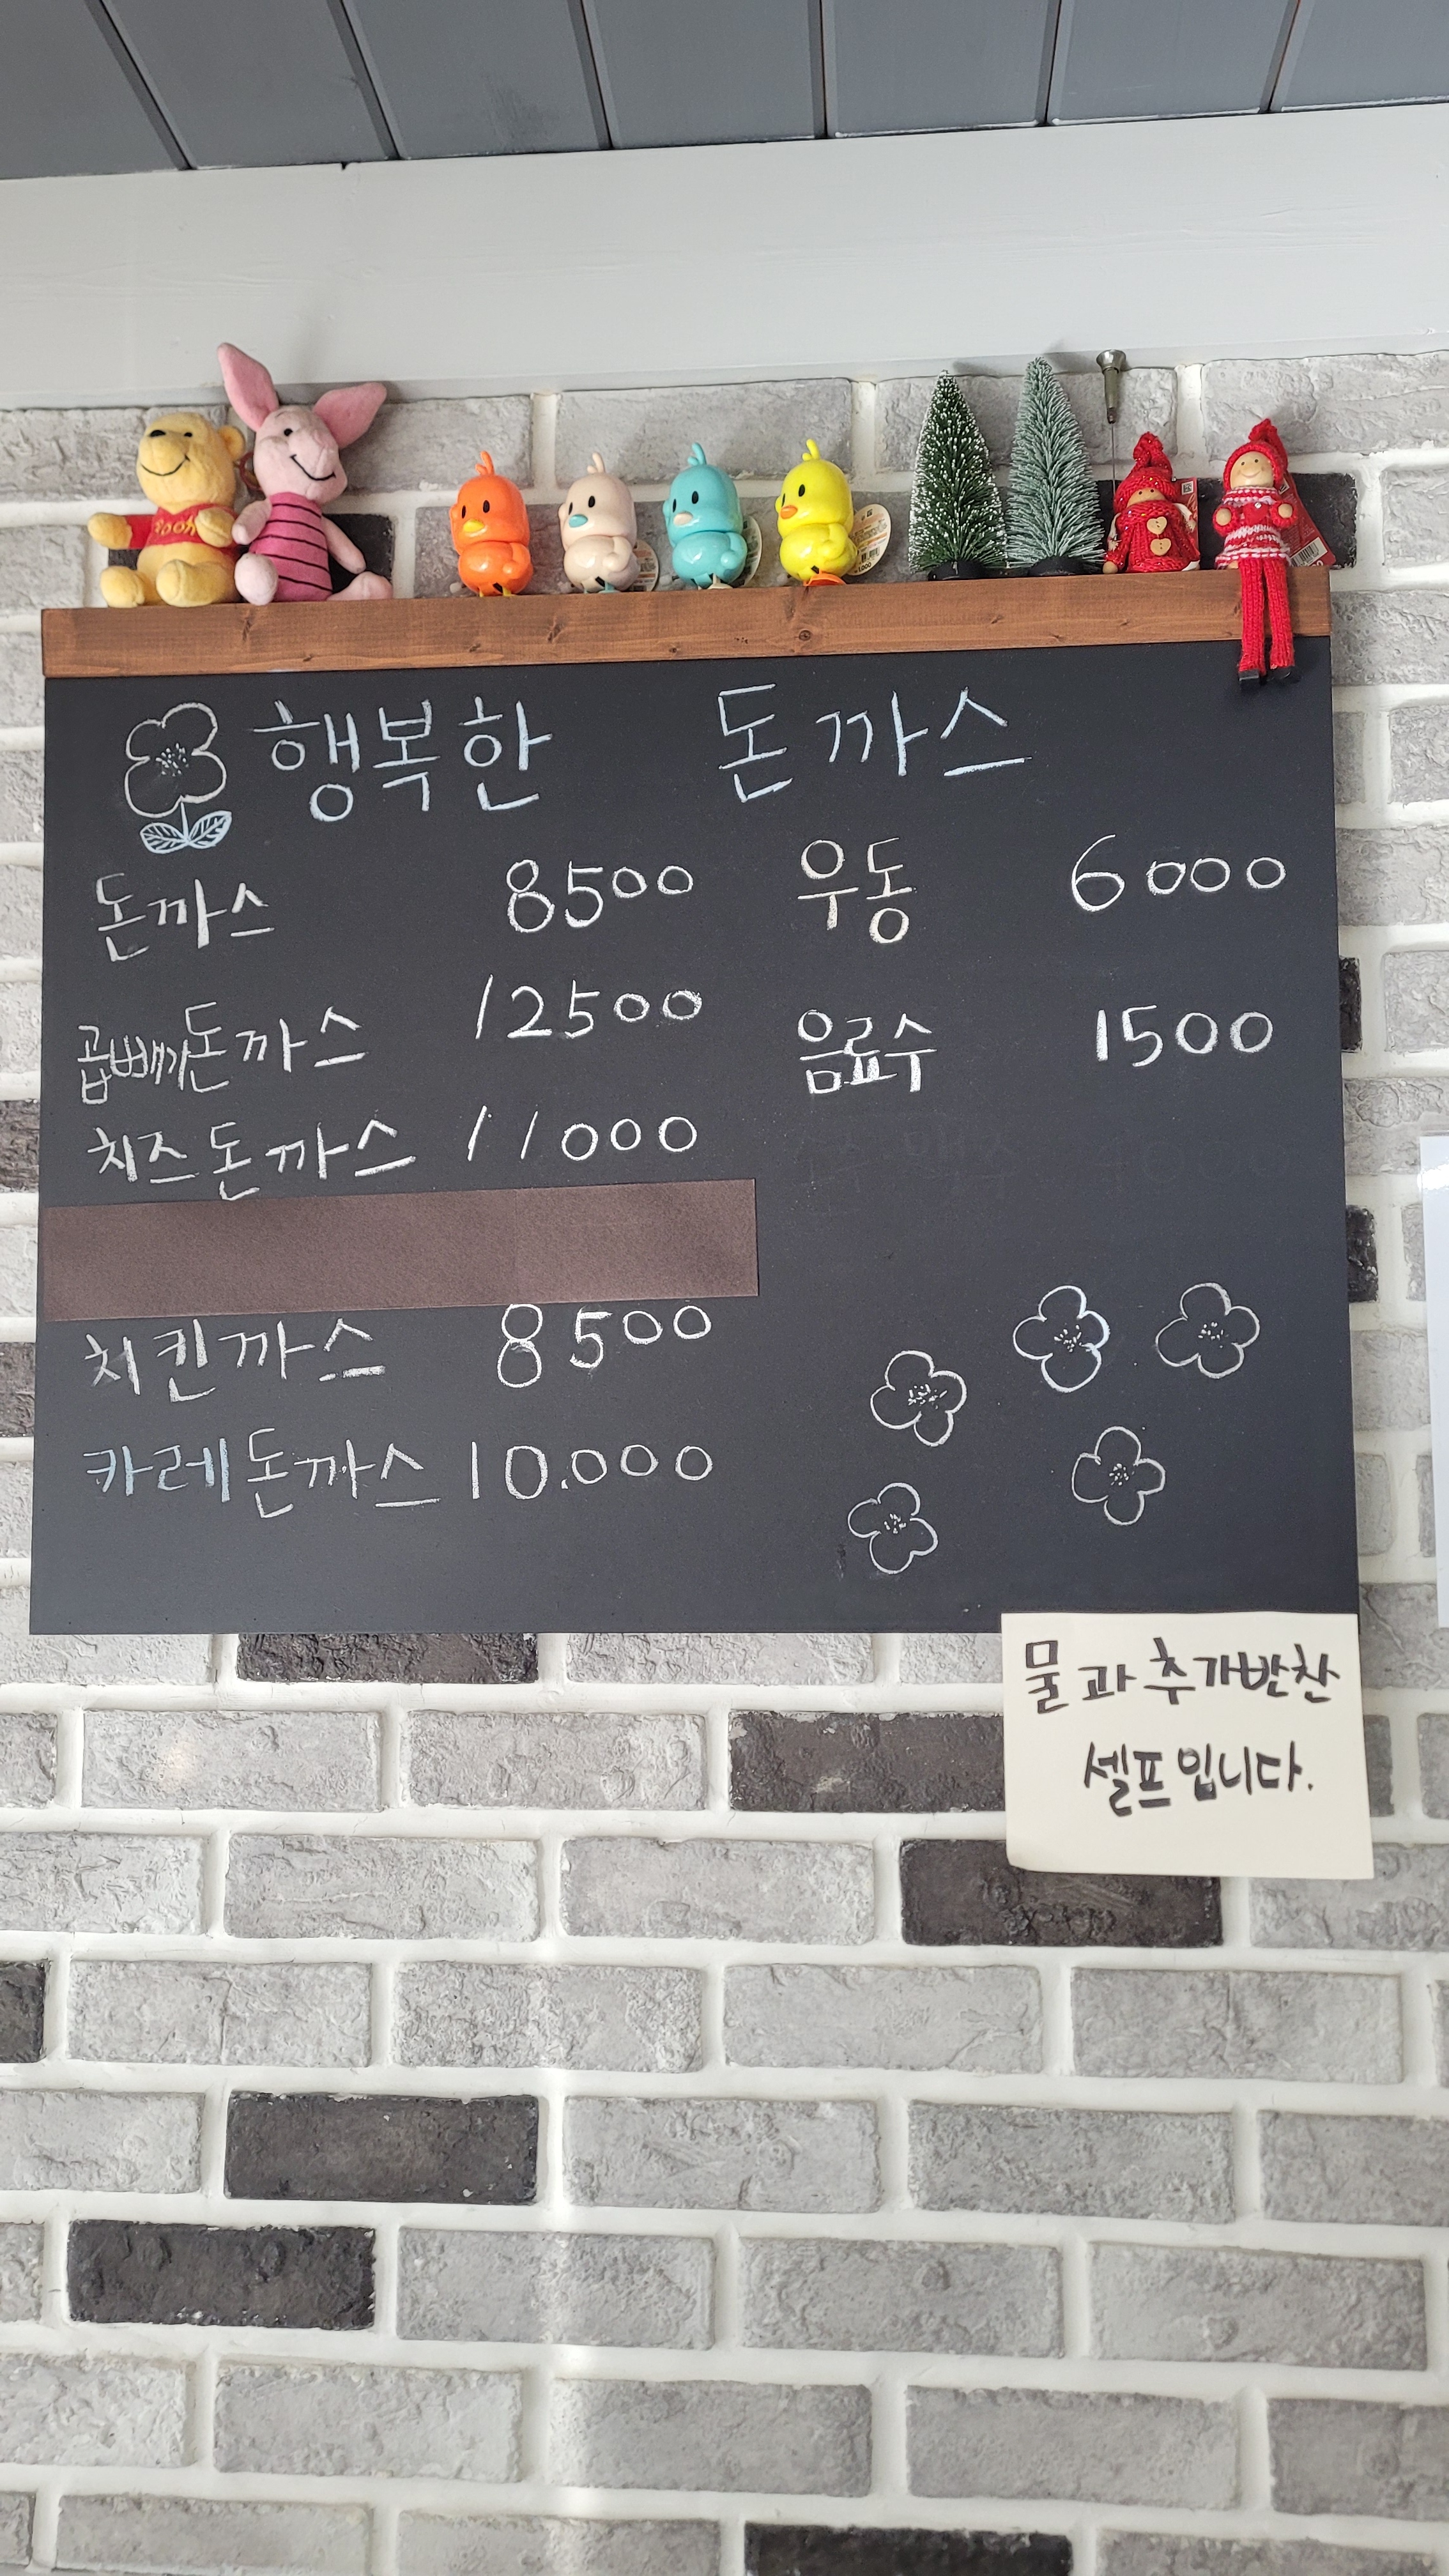 행복한 돈까스
돈까스 8500
곱빼기돈까스 12500
치즈돈까스 11000
치킨까스 8500
카레돈까스 10.000
우동 6000
음료수 1500
물과 추가반찬
셀프입니다.
POOH